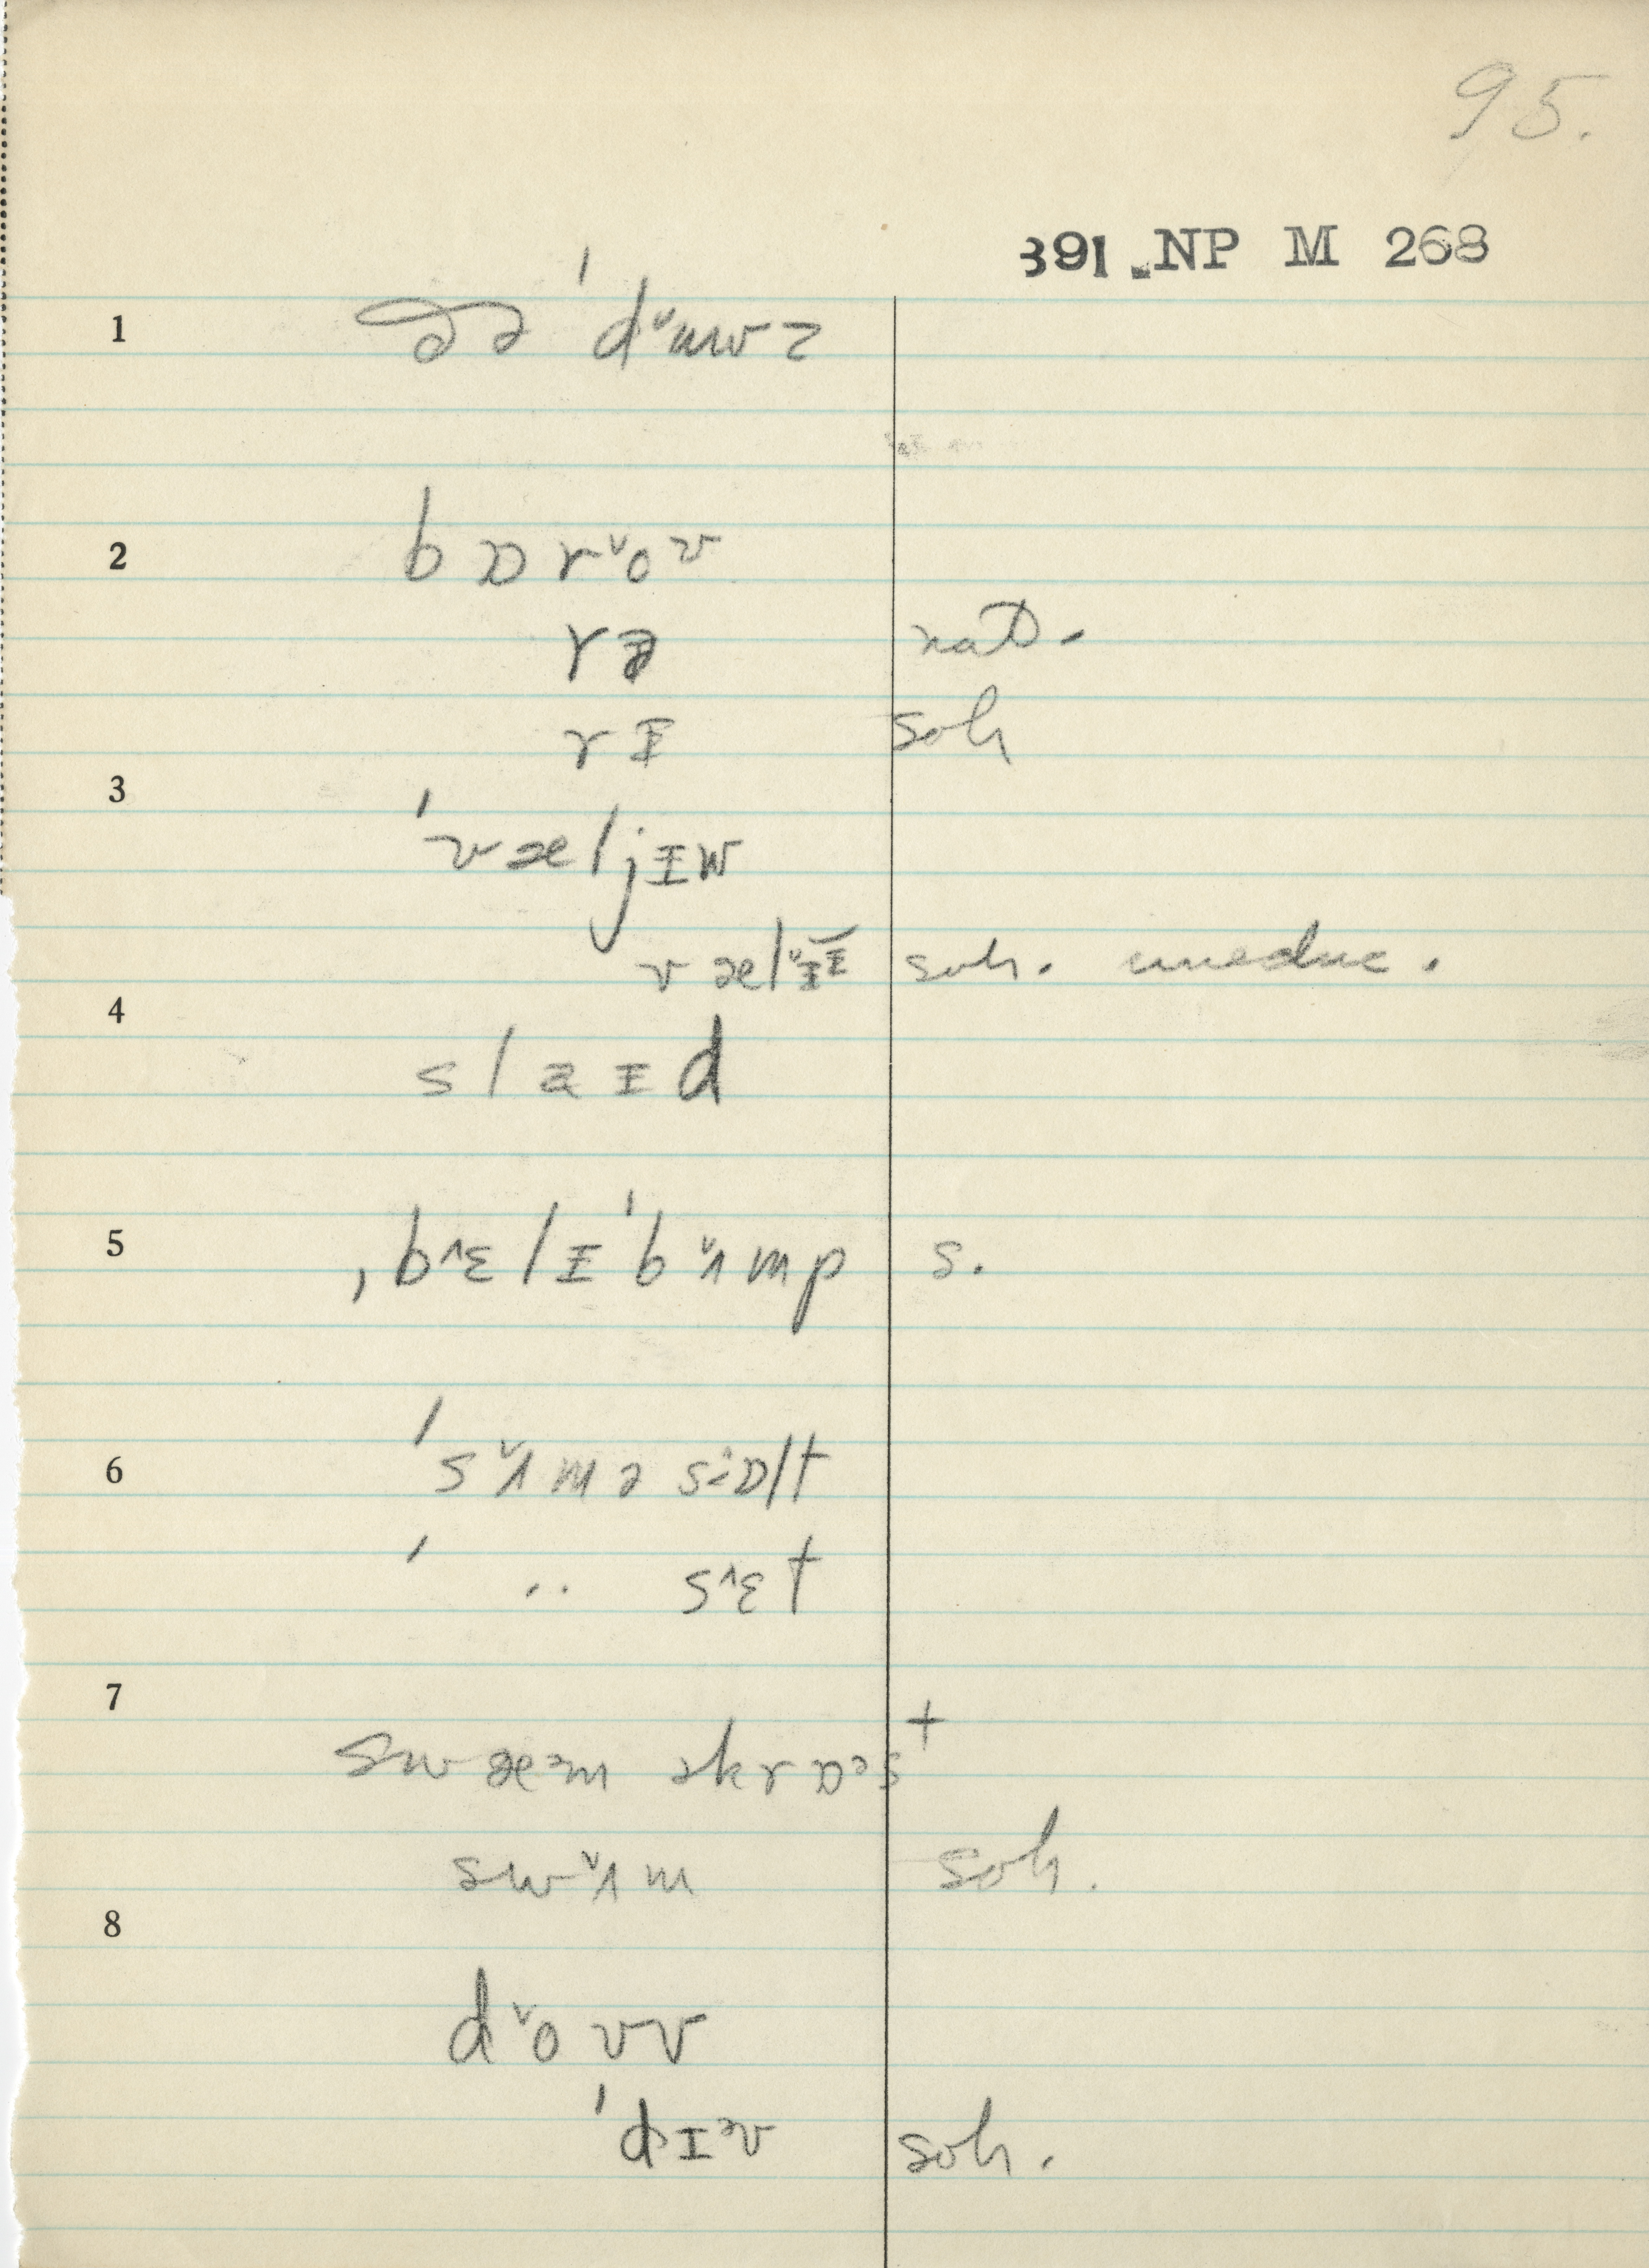 95.
391 NP M 268
1
2
b ɒ r ˅o ʊ
r ə nat.
r ɪ soh
3
ˈv æ l j ɪ w
v æ l ˅ɪ ɪ soh. uneduc.
4
s l a ɪ d
5
ˌb ˄ɛ l ɪ ˈb ˅ʌ m p s.
6
ˈs ˅ʌ m ə s ɒ l t
ˈ ·· s ˄ɛ t
7
s w æ ᵊ m ə k r ɒ ᵊ s ᵗ
s w ˅ʌ m soh.
8
d ˅o ʊ v
ˈd ɪ ᵊ v soh.